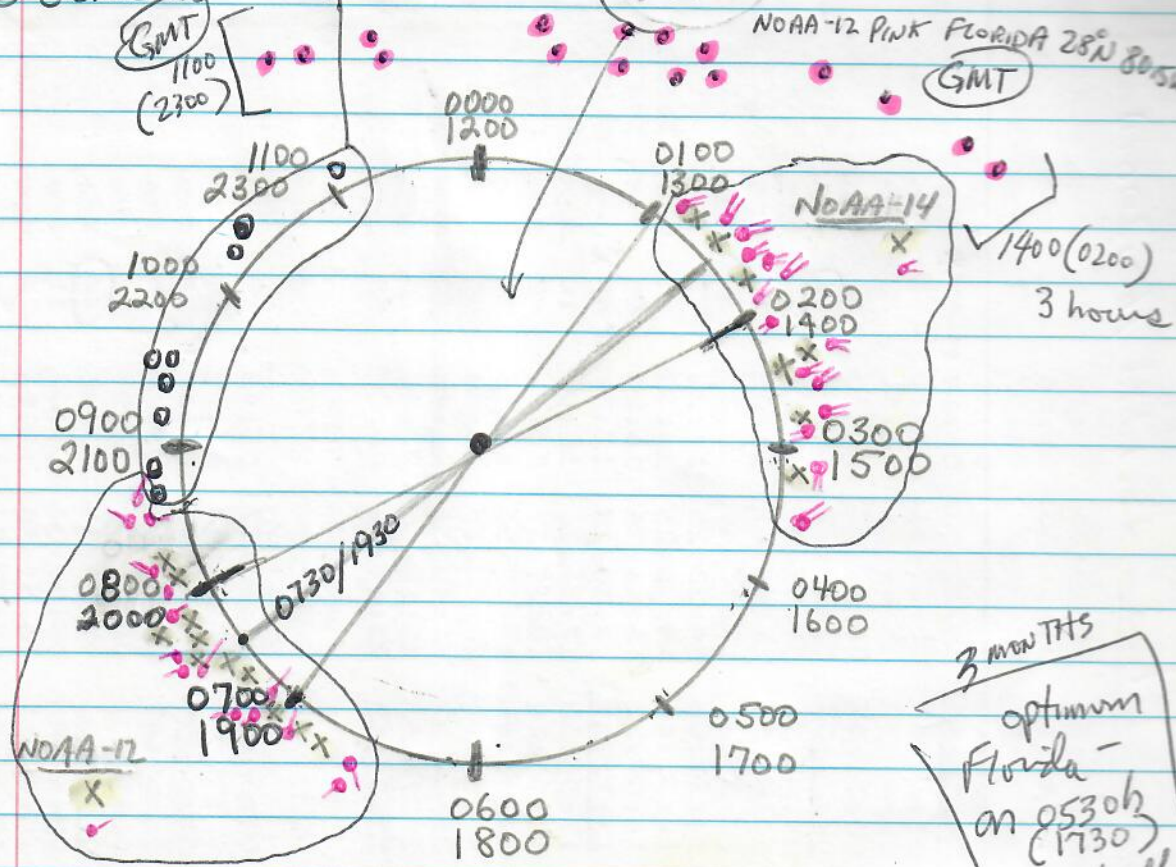 GMT
1100
(2300)
NOAA-12 PINK FLORIDA 28°N
GMT
0000
1200
0100
1300
NOAA-14
X
1400(0200)
3 hours
0200
1400
0300
1500
0400
1600
0500
1700
0600
1800
0700
1900
0730/1930
0800
2000
0900
2100
1000
2200
1100
2300
NOAA-12
X
3 MONTHS
optimum
Florida -
on 0530h
(1730)